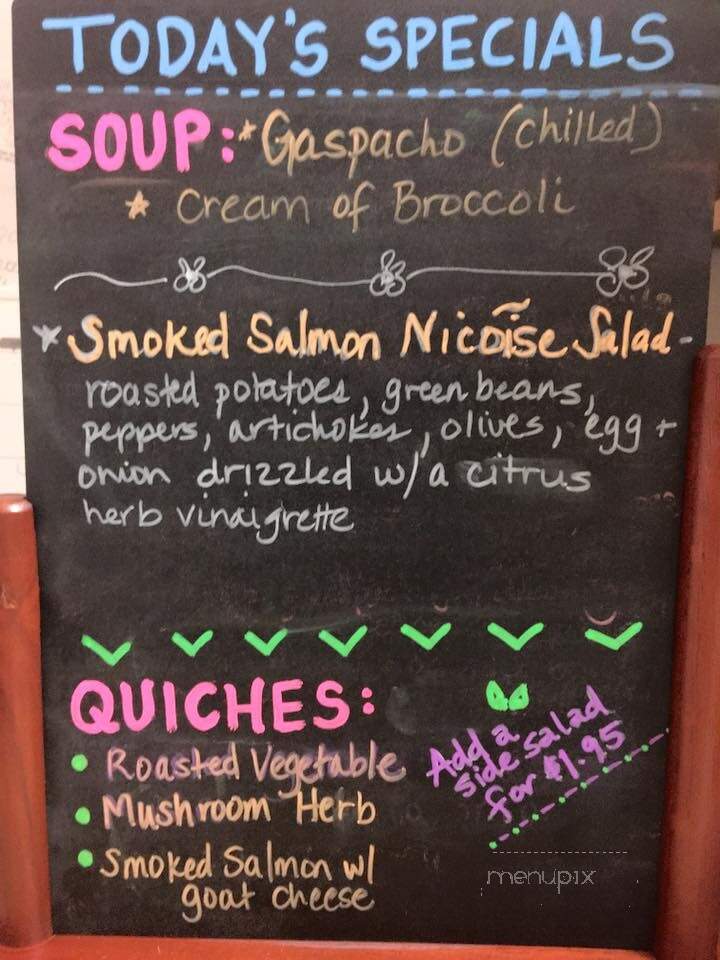 TODAY'S SPECIALS
SOUP: * Gaspacho (chilled)
* Cream of Broccoli
* Smoked Salmon Nicõise Salad -
roasted potatoes, green beans,
peppers, artichokes, olives, egg +
onion drizzled w/a citrus
herb vinaigrette
QUICHES:
• Roasted Vegetable
• Mushroom Herb
• Smoked Salmon w/
goat cheese
Add a
side salad
for $1.95
menupix